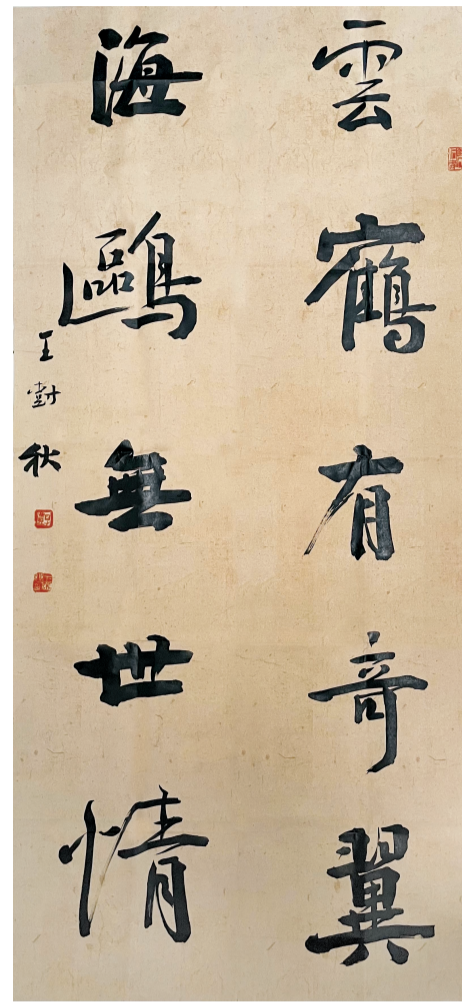 雲鶴有奇翼
海鷗無世情
王對秋